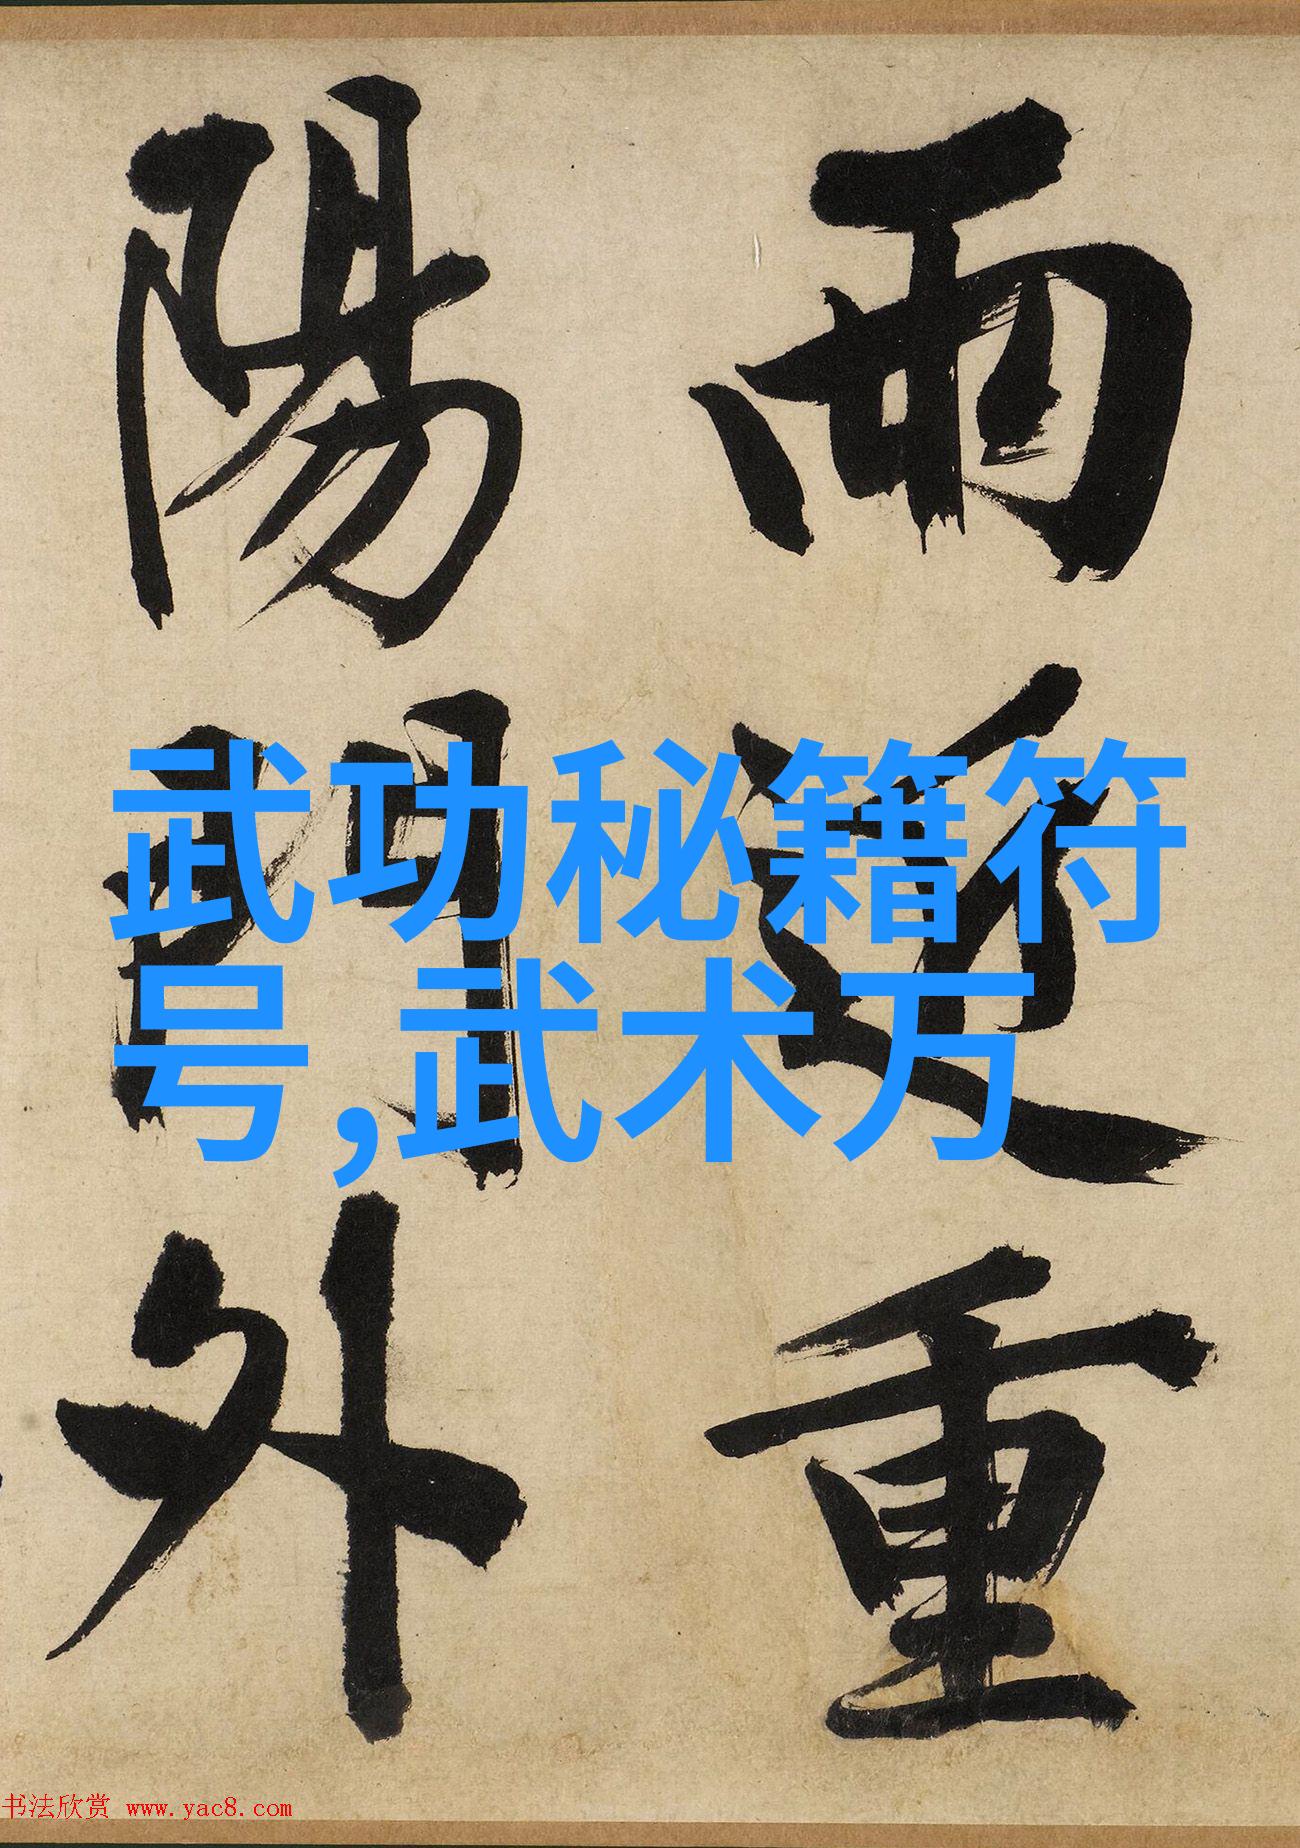 雨近重
陽門外
武功秘籍符
号,武术万
书法欣赏 www.yac8.com